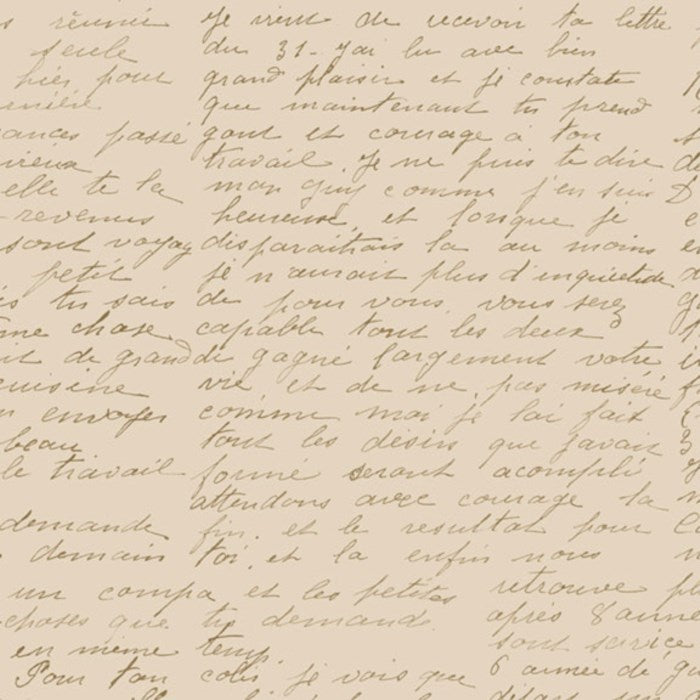 s réunie
seule
hier pour
ances passé
elle te la
-revenus
sont voyag
petit
is tu sais
me chose
nt de grand
cuisine
n envoyer
beau
le travail
demande
demain
Je vient de recevoir ta lettre
du 31- j'ai lu avec bien
grand plaisir et je constate
que maintenant tu prend
gout et courage a ton
travail Je ne puis te dire
mon guy comme j'en suis
heureuse et lorsque je
disparaitrais la au moins
je n'aurait plus d'inquietude
de pour vous. vous serez
capable tout les deux
de gagné largement votre
vie et de ne pas miséré
comme moi je l'ai fait
tout les désirs que j'avait
formé seront acompli
attendons avec courage la
fin. et le resultat pour
toi. et la enfin nous
un compa et les petites
choses que tu demande.
en même temp.
Pour ton colis je vois que
retrouve
après 8 anne
sont service
6 année de